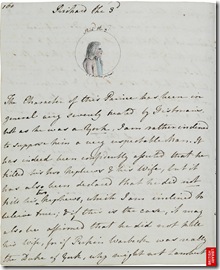 Richard the 3d
Richd the 3d
The Character of this Prince has been in
general very severely treated by Historians,
but as he was a York, I am rather inclined
to suppose him a very respectable Man. It
has indeed been confidently asserted that he
killed his two Nephews & his Wife, but it
has also been declared that he did not
kill his two Nephews, which I am inclined to
beleive true; & if this is the case, it may
also be affirmed that he did not kill
his Wife, for if Perkin Warbeck was really
the Duke of York, why might not Lambert